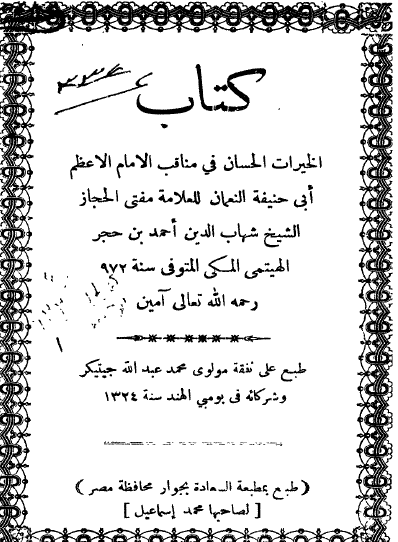 كتاب
الخيرات الحسان في مناقب الامام الاعظم
أبى حنيفة النعمان للعلامة مفتى الحجاز
الشيخ شهاب الدين أحمد بن حجر
الهيتمى المكى المتوفى سنة ٩٧٢
رحمه الله تعالى آمين
١
طبع على نفقة مولوى محمد عبد الله جيتيكر
وشركائه فى بومبي الهند سنة ١٣٢٤
( طبع بمطبعة السعادة بجوار محافظة مصر )
[ لصاحبها محمد إسماعيل ]